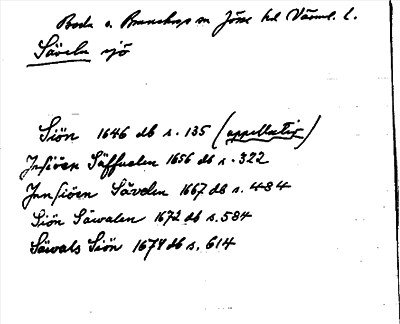 Boda o. Brunskogs sn Jösse hd Värml. l.
Sävelns sjö
Siön 1646 db s. 135 (appellativ)
Insiöen Säffuelen 1656 db s. 322
Innsiöen Sävelen 1667 db s. 484
Siön Säwalen 1672 db s. 584
Säwals Siön 1674 db s. 614